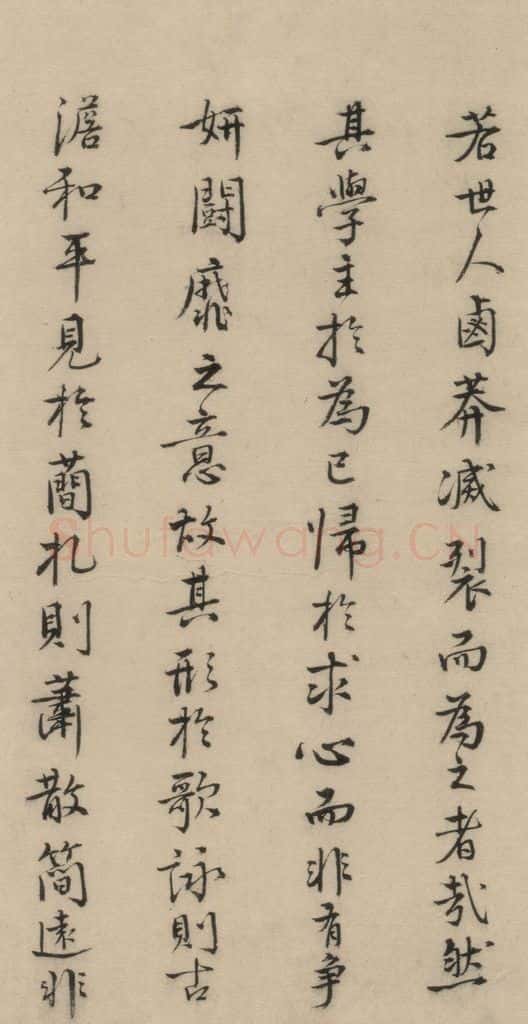 若世人鹵莽滅裂而為之者哉然
其學主於為己歸於求心而非有爭
妍鬭靡之意故其形於歌詠則古
澹和平見於蕳札則蕭散簡遠非
Shufawang.CN